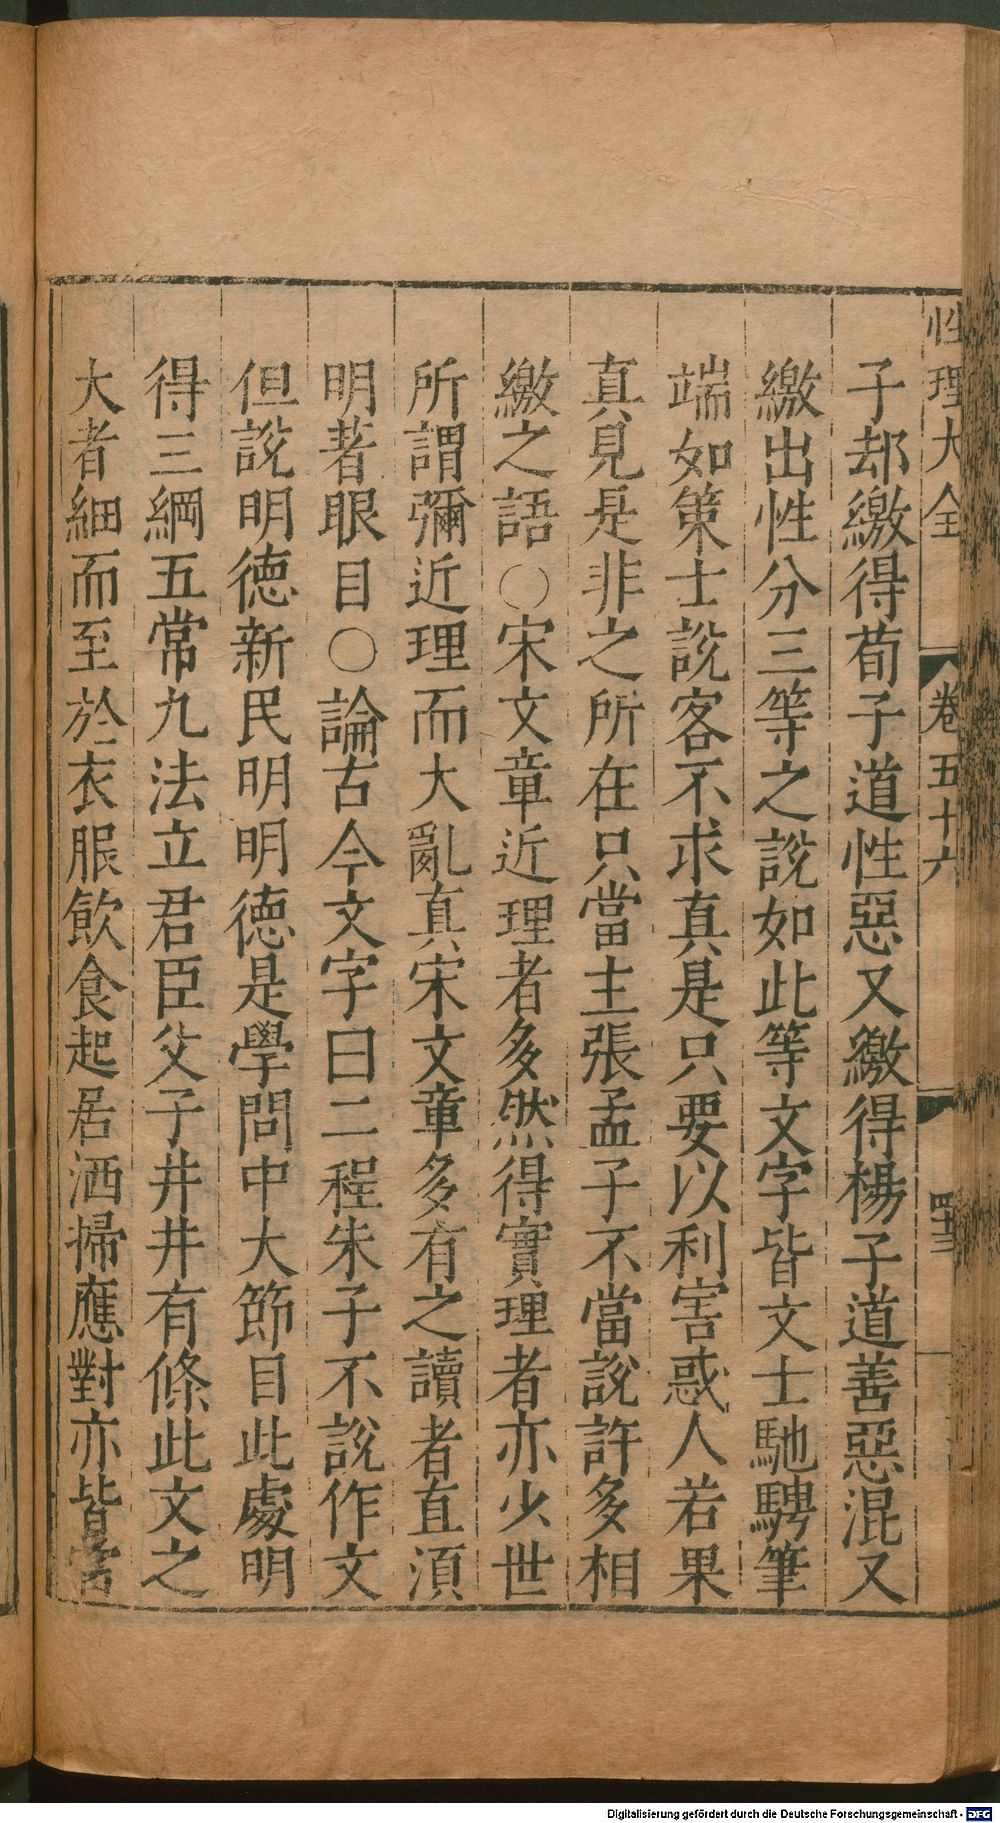 性理大全 卷五十六 四十三
子却繳得荀子道性惡又繳得楊子道善惡混又
繳出性分三等之說如此等文字皆文士馳騁筆
端如策士說客不求真是只要以利害惑人若果
真見是非之所在只當主張孟子不當說許多相
繳之語○宋文章近理者多然得實理者亦少世
所謂彌近理而大亂真宋文章多有之讀者直須
明著眼目○論古今文字曰二程朱子不說作文
但說明德新民明明德是學問中大節目此處明
得三綱五常九法立君臣父子井井有條此文之
大者細而至於衣服飲食起居洒掃應對亦皆當
Digitalisierung gefördert durch die Deutsche Forschungsgemeinschaft - DFG